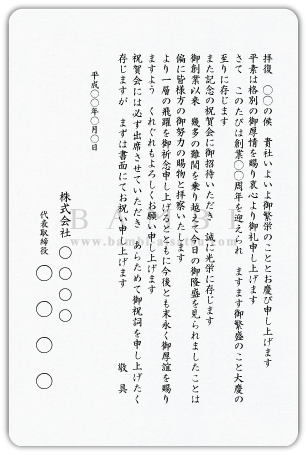 拝復　〇〇の候　貴社いよいよ御繁栄のこととお慶び申し上げます
平素は格別の御厚情を賜り衷心より御礼申し上げます
さて　このたびは創業〇〇周年を迎えられ　ますます御繁盛のこと大慶の
至りに存じます
また記念の祝賀会に御招待いただき　誠に光栄に存じます
御創業以来　幾多の難関を乗り越えて今日の御隆盛を見られましたことは
偏に皆様方の御努力の賜物と拝察いたします
より一層の飛躍を御祈念申し上げるとともに今後とも末永く御厚誼を賜り
ますよう　くれぐれもよろしくお願い申し上げます
祝賀会には必ず出席させていただき　あらためて御祝詞を申し上げたく
存じますが　まずは書面にてお祝い申し上げます
敬具
平成〇〇年〇月〇日
株式会社　〇〇〇〇
代表取締役　〇〇〇〇